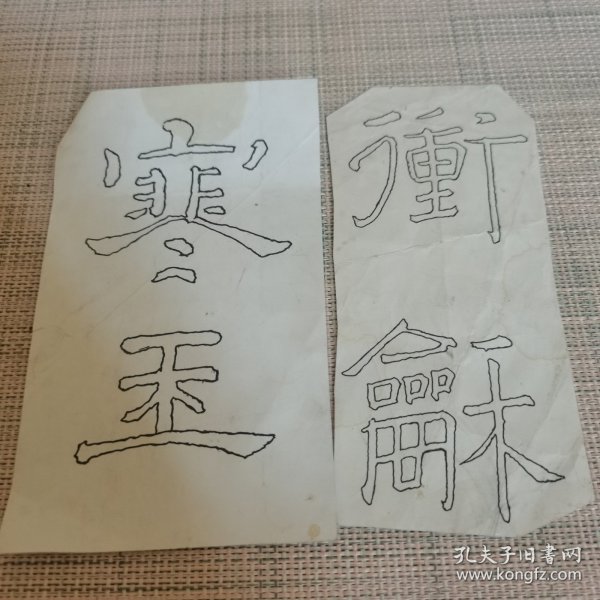 寒玉
衝龢
孔夫子旧书网
www.kongfz.com